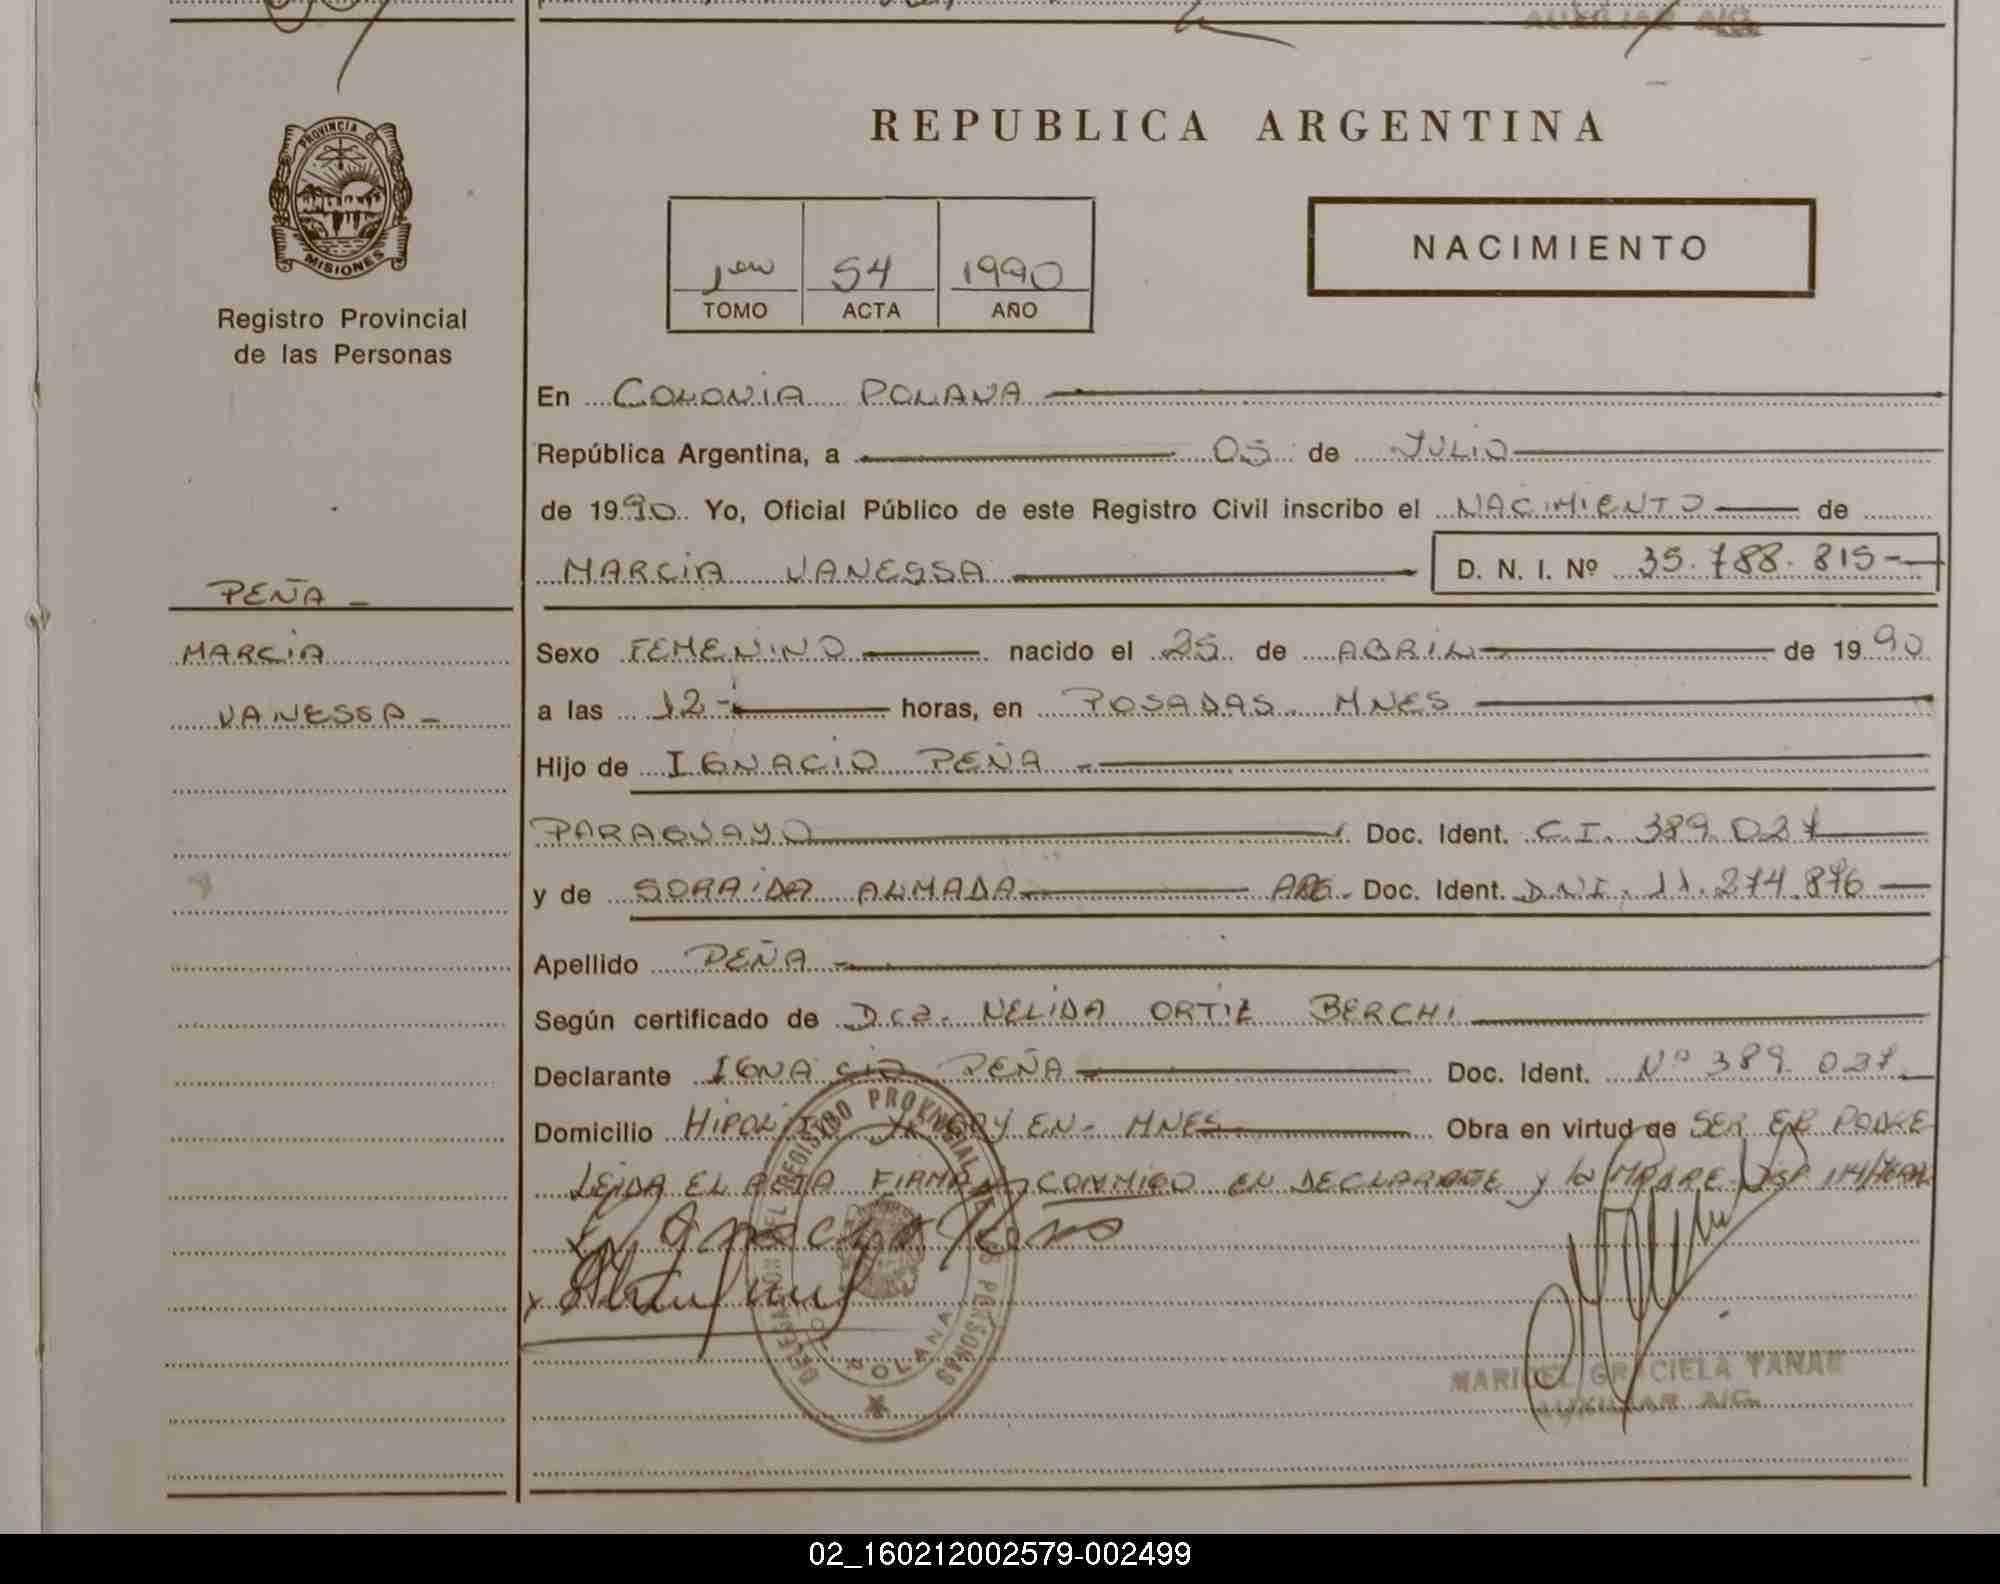 AUXILIAR A/G.
PROVINCIA D
MISIONES
Registro Provincial
de las Personas
REPUBLICA ARGENTINA
1ero 54 1990
TOMO ACTA AÑO
NACIMIENTO
En COLONIA POLANA
República Argentina, a 05 de JULIO
de 1990 Yo, Oficial Público de este Registro Civil inscribo el NACIMIENTO de
MARCIA VANESSA D. N. I. Nº 35.788.815-
PEÑA -
MARCIA
VANESSA -
Sexo FEMENINO nacido el 25 de ABRIL de 1990
a las 12- horas, en POSADAS. MNES
Hijo de IGNACIO PEÑA -
PARAGUAYO Doc. Ident. C.I. 389.027
y de SORAIDA ALMADA ARG. Doc. Ident. D.N.I. 11.274.876
Apellido PEÑA -
Según certificado de Dra. NELIDA ORTIZ BERCHI
Declarante IGNACIO PEÑA Doc. Ident. Nº 389.027
Domicilio HIPOLITO YRIGOYEN - MNES Obra en virtud de SER EL PADRE
LEIDA EL ACTA FIRMAN CONMIGO EL DECLARANTE y la MADRE
Ignacio Peña
DELEGACION DEL REGISTRO PROVINCIAL DE LAS PERSONAS
COL. POLANA
MARICEL GRACIELA YANAE
AUXILIAR A/G.
02_160212002579-002499